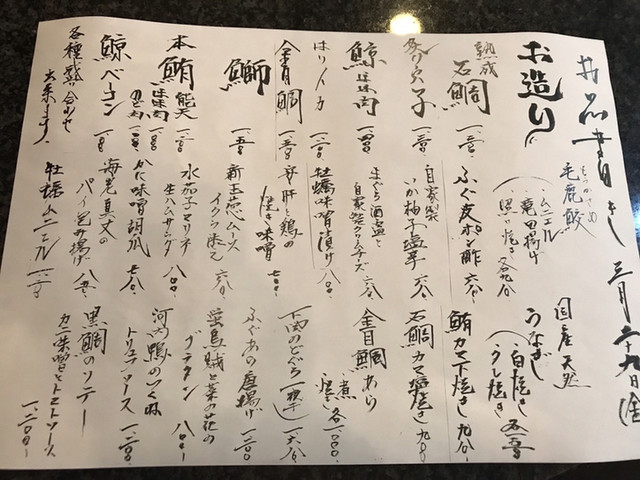 お品書き 三月二十九日(金)
お造り
熟成
石鯛 一二〇〇
炙り穴子 一二〇〇
鯨 赤身
はりいか 一二〇〇
金目鯛 一三〇〇
鰤 一三〇〇
本鮪
鯨ベーコン
各種盛り合わせ
出来ます。
もうかざめ
毛鹿鮫
ムニエル
竜田揚げ
照り焼き 各九八〇
ふぐ皮ポン酢 六八〇
自家製
いか柚子塩辛 六八〇
まぐろ酒盗と
自家製クリームチーズ 六八〇
牡蠣味噌漬け 八〇〇
白肝と鶏の
焼き味噌 七〇〇
新玉葱ムース
イクラ添え 六八〇
水茄子マリネ
生ハムサンド 八〇〇
かに味噌胡瓜 七八〇
海老真丈の
パイ包み揚げ 八五〇
牡蠣ムニエル 一二〇〇
国産天然
うなぎ
白焼き
タレ焼き
鮪カマ下焼き 九八〇
石鯛カマ塩焼き 九八〇
金目鯛あら
煮
焼 各一〇〇〇
下関のどぐろ一夜干し 一六八〇
ふぐあら唐揚げ 一二〇〇
蛍烏賊と菜の花の
グラタン 八〇〇
河内鴨のつくね
トリュフソース 一三〇〇
黒鯛のソテー
カニ味噌とトマトソース
一二〇〇